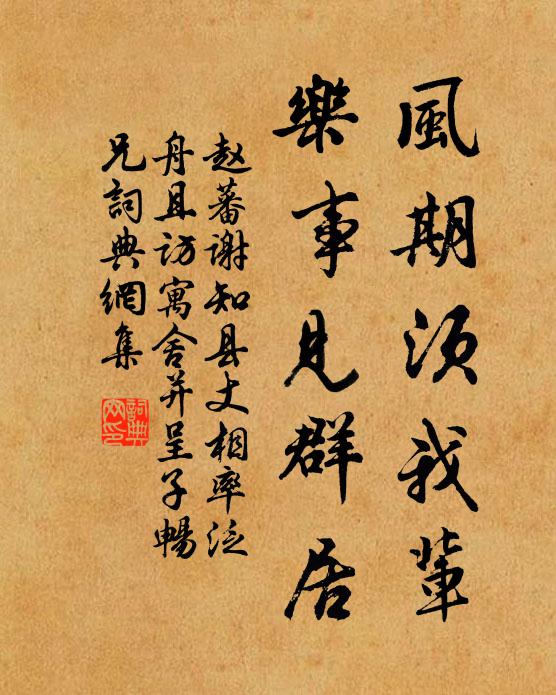 風期須我輩
樂事見群居
赵蕃謝知县丈相率泛
舟且访寓舍并呈子暢
兄詞典網集
詞典
网印